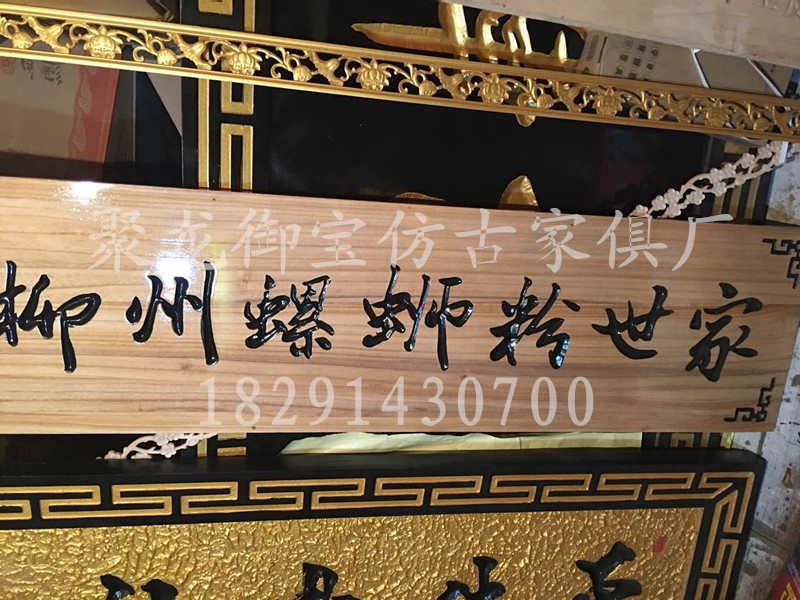 聚龙御宝仿古家俱厂
柳州螺蛳粉世家
18291430700